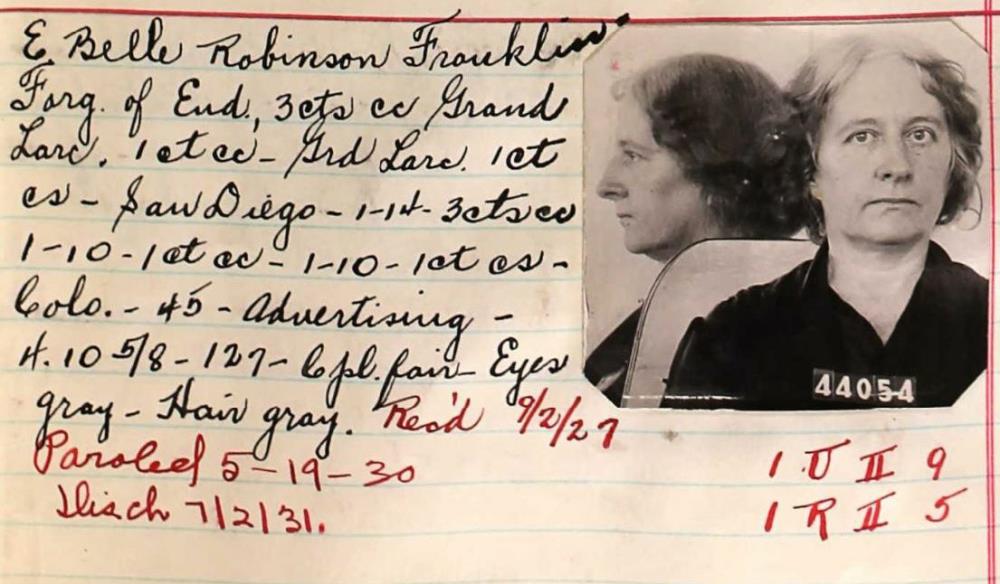 E. Belle Robinson Franklin
Forg. of End., 3cts cc Grand
Larc. 1 ct cc - Grd Larc. 1ct
cs - San Diego - 1-14 - 3cts cc
1-10 - 1ct cc - 1-10 - 1ct cs -
Colo. - 45 - Advertising -
4. 10 5/8 - 127 - Cpl. fair - Eyes
gray - Hair gray. Rec'd 9/2/27
Paroled 5-19-30
Disch 7/2/31.
44054
1 U II 9
1 R II 5